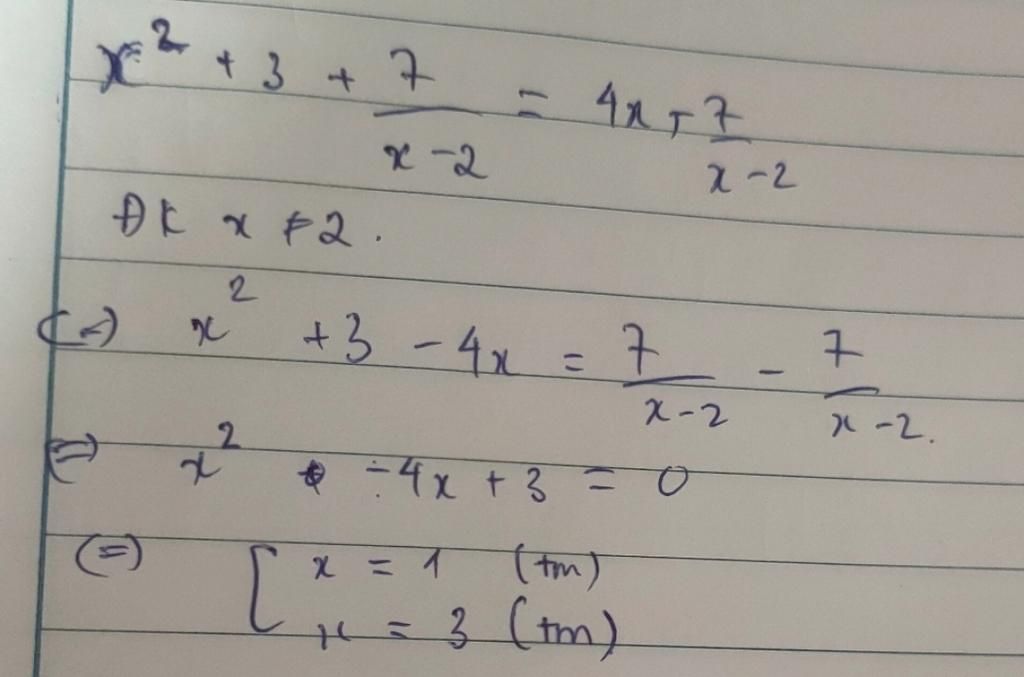 x² + 3 + 7/(x-2) = 4x + 7/(x-2)
ĐK x ≠ 2.
(=) x² + 3 - 4x = 7/(x-2) - 7/(x-2).
(=) x² - 4x + 3 = 0
(=) [ x = 1 (tm)
x = 3 (tm)